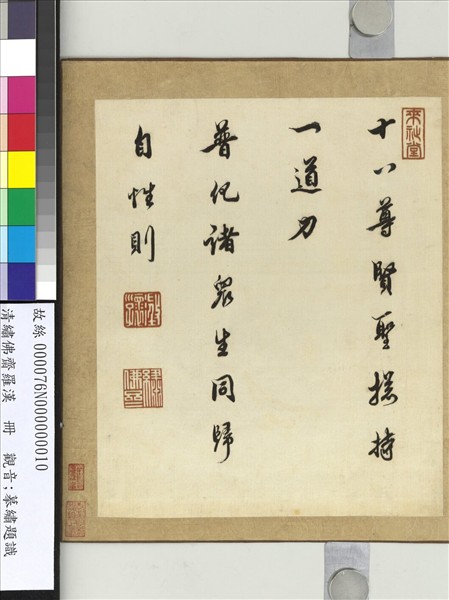 十八尊賢聖摠持
一道力
普化諸衆生同歸
自性則
來祉堂
故絲000076N000000010
清繡佛齋羅漢 冊 觀音;摹繡題識